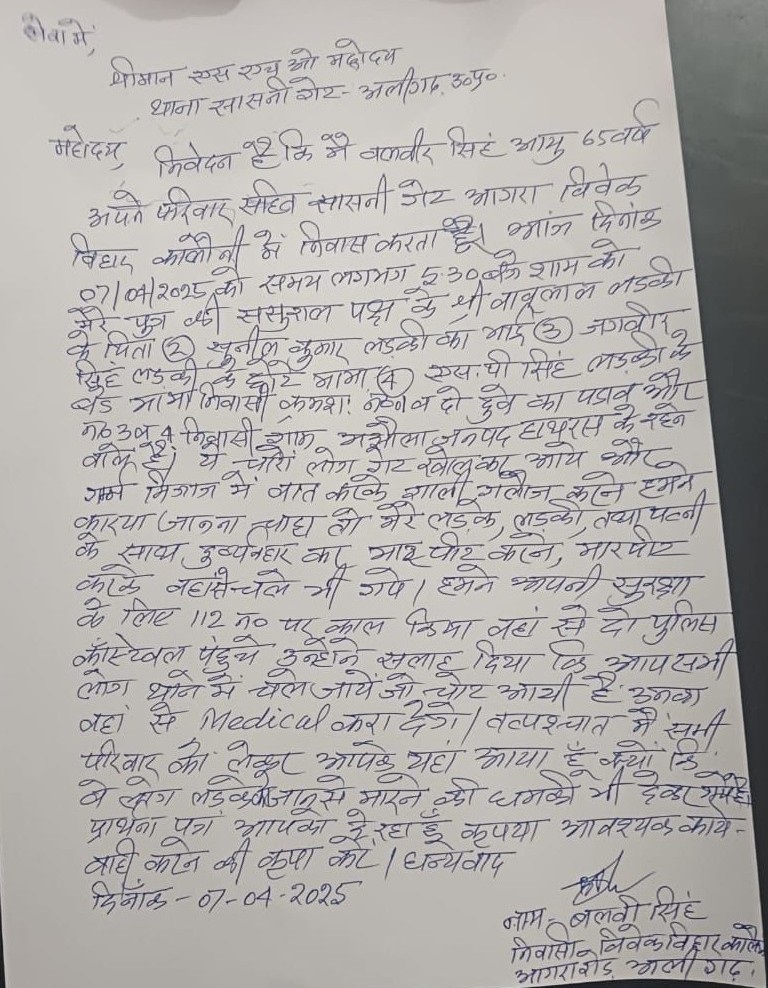 सेवा में,
श्रीमान एस एच ओ महोदय
थाना सासनी गेट - अलीगढ़, उ०प्र०.
महोदय,
निवेदन है कि मै बलवीर सिंह आयु 65 वर्ष
अपने परिवार सहित सासनी गेट आगरा विवेक
विहार कालौनी में निवास करता हूँ। आज दिनांक
07/04/2025 को समय लगभग 5:30 बजे शाम को
मेरे पुत्र की ससुराल पक्ष के श्री बाबूलाल लडकी
के पिता (2) सुनील कुमार लडकी का भाई (3) जगवीर
सिंह लडकी के छोटे मामा (4) एस.पी सिंह लडकी के
बड़े मामा निवासी क्रमशः न० 1 व दो दुबे का पडाव और
न० 3 व 4 निवासी ग्राम जनपद हाथरस के रहने
वाले हैं, ये चारों लोग गेट खोलकर आये और
गर्म मिजाज में बात करके गाली गलौज करने हमने
कारया जानना चाहा तो मेरे लड़के, लडकी, तथा पत्नी
के साथ दुर्व्यवहार कर मारपीट करने, मारपीट
करके वहां से चले भी गये। हमने अपनी सुरक्षा
के लिए 112 न० पर काल किया वहां से दो पुलिस
काँस्टेवल पंहुचे उन्होंने सलाह दिया कि आप सभी
लोग थाने में चले जायें जो चोट आयी है उनका
वहां से Medical करा देंगे। तत्पश्चात मैं सभी
परिवार को लेकर आपके यहां आया हूँ क्यों कि
वे लोग लडके को जान से मारने की धमकी भी देकर गये है
प्रार्थना पत्र आपको दे रहा हूँ कृपया आवश्यक कार्य-
वाही करने की कृपा करें। धन्यवाद
दिनाँक - 07-04-2025
नाम - बलवीर सिंह
निवासी - विवेक विहार कालौनी
आगरा रोड, अलीगढ़.